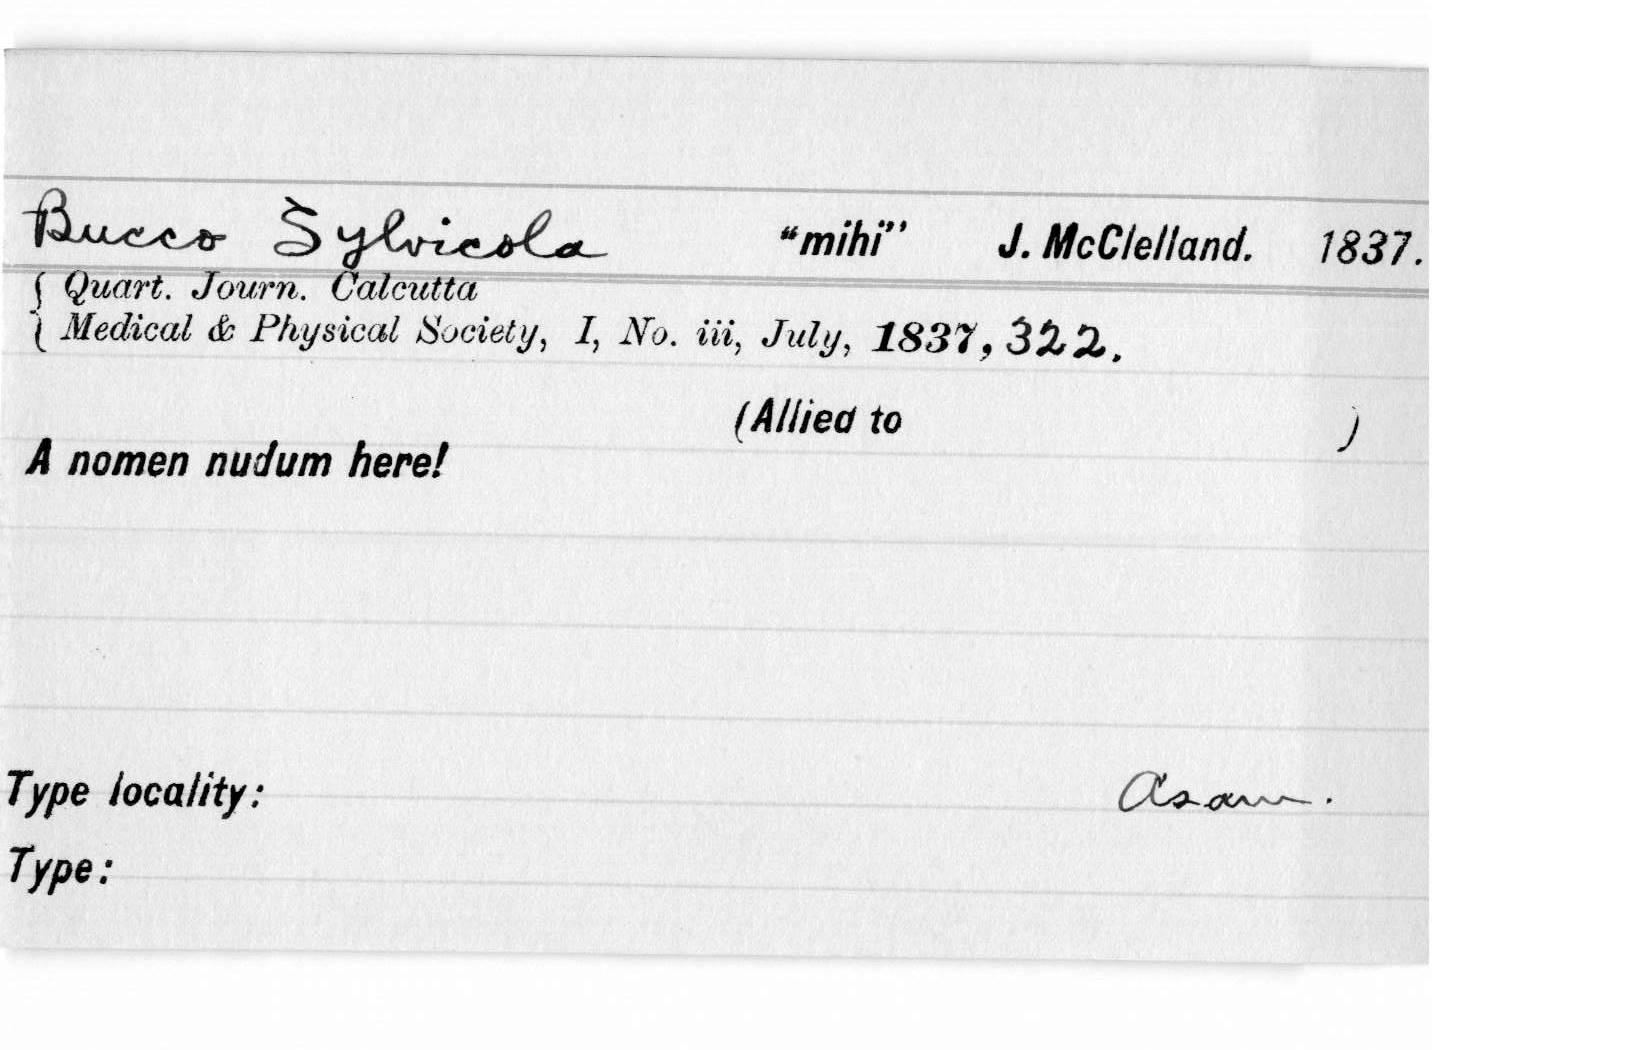 Bucco Sylvicola "mihi" J. McClelland. 1837.
{ Quart. Journ. Calcutta
{ Medical & Physical Society, I, No. iii, July, 1837, 322.
(Allied to )
A nomen nudum here!
Type locality: Asam.
Type: